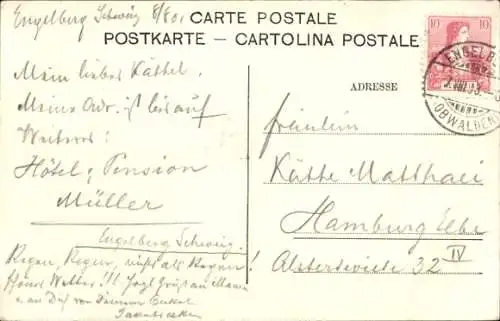 Engelberg Schweiz 8/8 01
CARTE POSTALE
POSTKARTE — CARTOLINA POSTALE
10 10
ENGELBERG
OBWALDEN
Mein liebes Käthel.
Meine Adr. ist bis auf
Weiteres:
Hôtel, Pension
Müller
Engelberg Schweiz.
Regen, Regen, nichts als Regen!
Wetter!!!
u. an Dich von Deinem
ADRESSE
Fräulein
Käthe Matthaei
Hamburg Elbe
Alsterterrasse 32 IV